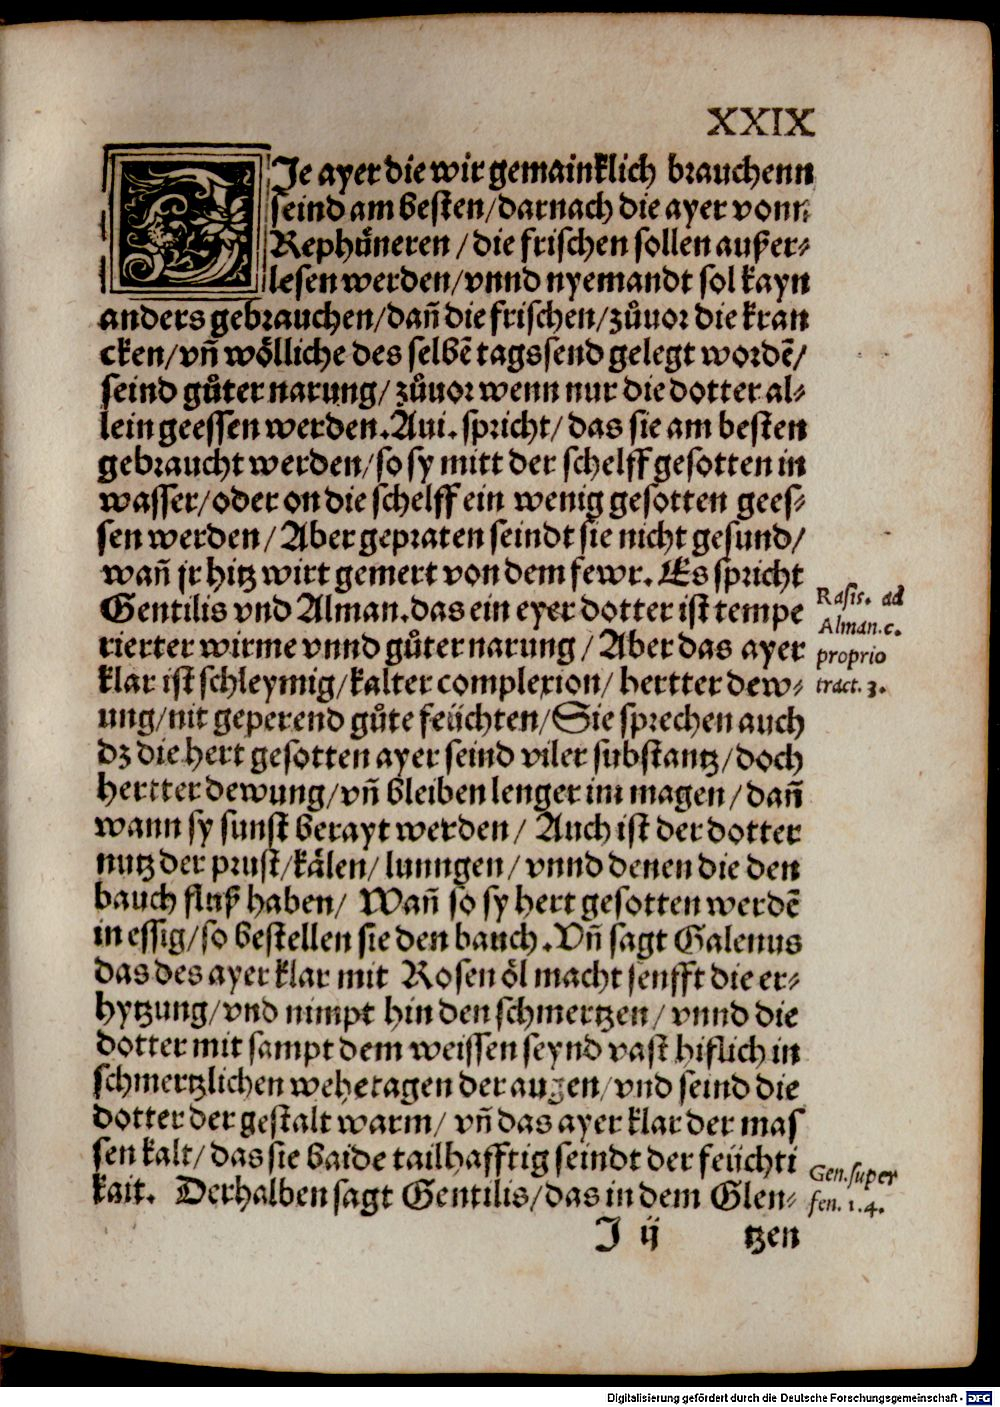 XXIX
DIe ayer die wir gemainklich brauchenn
seind am besten/darnach die ayer vonn
Rephůneren/die frischen sollen außer⸗
lesen werden/vnnd nyemandt sol kayn
anders gebrauchen/dañ die frischen/zůuor die kran
cken/vñ wölliche des selbē tags send gelegt wordē/
seind gůter narung/zůuor wenn nur die dotter al⸗
lein geessen werden.Aui. spricht/das sie am besten
gebraucht werden/so sy mitt der schelff gesotten in
wasser/oder on die schelff ein wenig gesotten gees⸗
sen werden/Aber gepraten seindt sie nicht gesund/
wañ jr hitz wirt gemert von dem fewr. Es spricht
Gentilis vnd Alman.das ein eyer dotter ist tempe
rierter wirme vnnd gůter narung/Aber das ayer
klar ist schleymig/kalter complexion/hertter dew⸗
ung/nit geperend gůte feüchten/Sie sprechen auch
dz die hert gesotten ayer seind viler substantz/doch
hertter dewung/vñ bleiben lenger im magen/dañ
wann sy sunst berayt werden/ Auch ist der dotter
nutz der prust/kälen/lunngen/vnnd denen die den
bauch fluß haben/ Wañ so sy hert gesotten werdē
in essig/so bestellen sie den bauch.Vñ sagt Galenus
das des ayer klar mit Rosen öl macht senfft die er⸗
hytzung/vnd nimpt hin den schmertzen/vnnd die
dotter mit sampt dem weissen seynd vast hiflich in
schmertzlichen wehetagen der augen/vnd seind die
dotter der gestalt warm/ vñ das ayer klar der mas
sen kalt/das sie baide tailhafftig seindt der feüchti
kait. Derhalben sagt Gentilis/das in dem Glen⸗
J ij tzen
Rasis. ad
Alman.c.
proprio
tract. 3.
Gen.super
fen. 1.4.
Digitalisierung gefördert durch die Deutsche Forschungsgemeinschaft - DFG